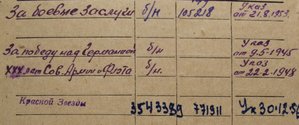 За боевые заслуги б/н 105218 Указ
от 21.8.1953.
За победу над Германией б/н Указ
от 9.5-1945
XXX лет Сов. Армии и Флота б/н. Указ
от 22.2-1948
Красной Звезды 3543389 771911 Ук 30.12.56